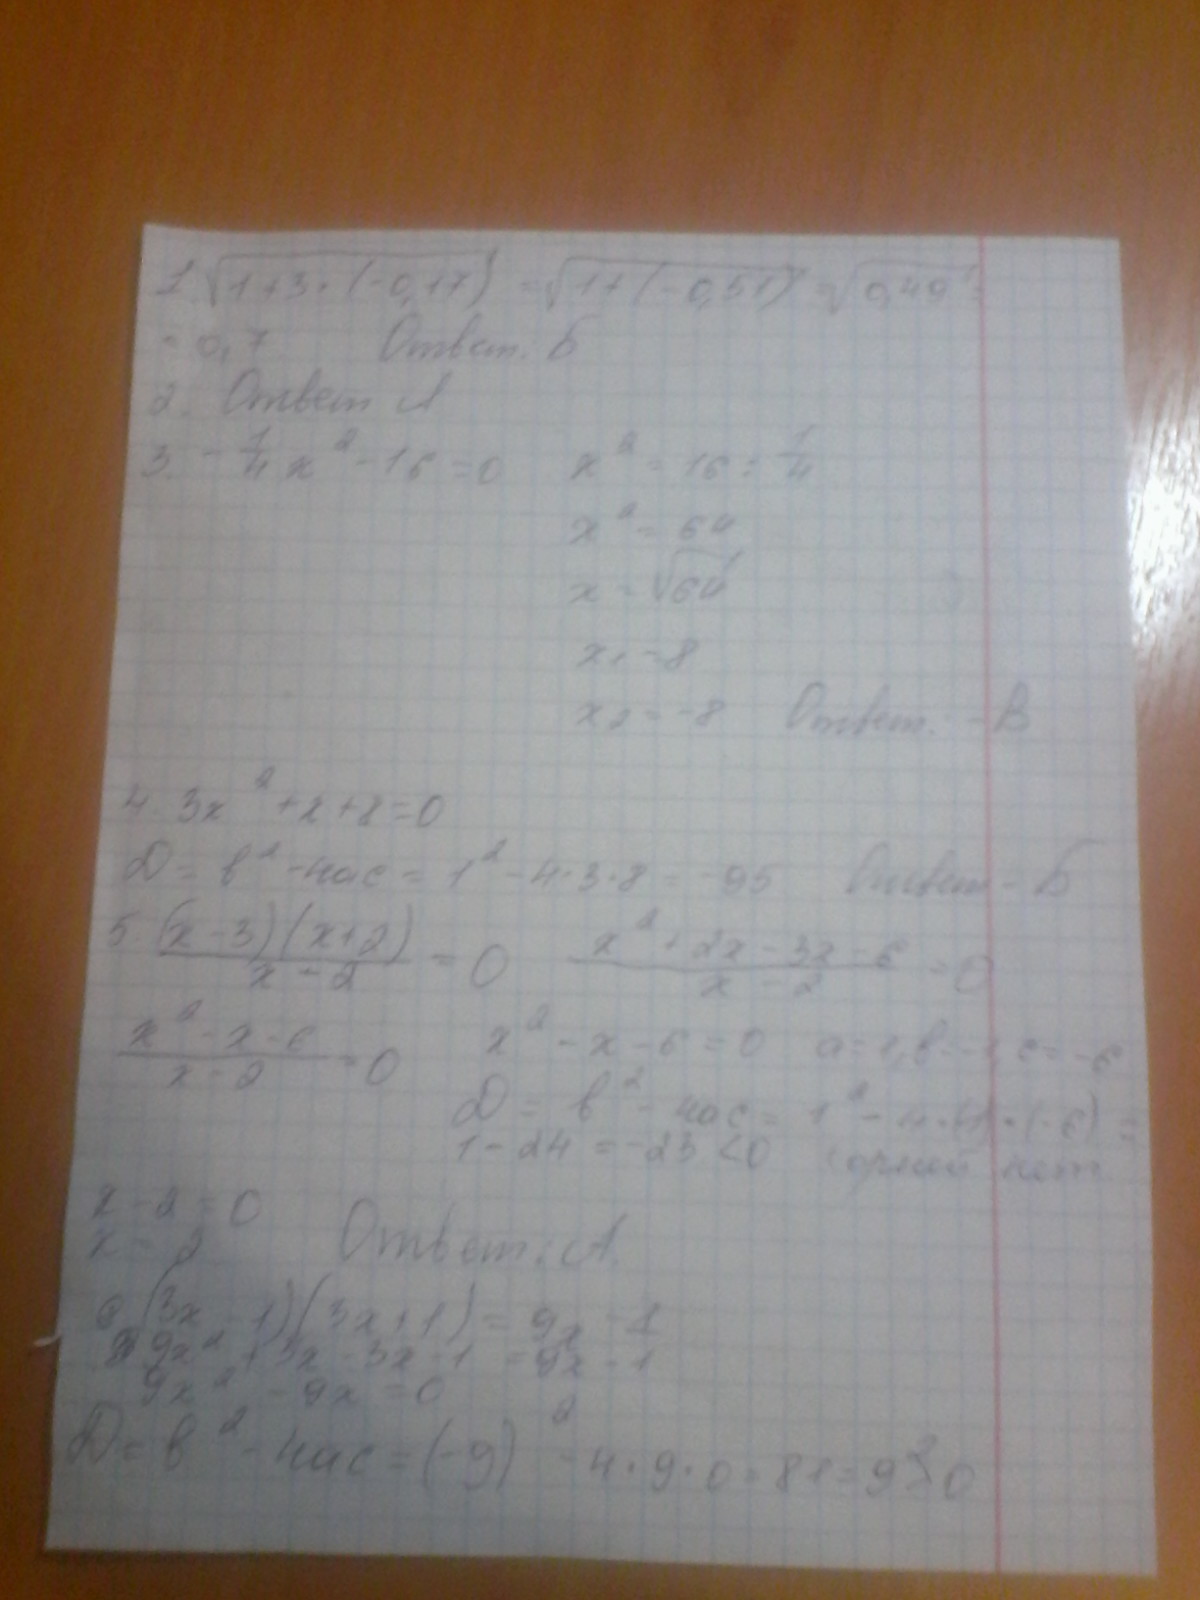 1. √1+3·(-0,17) = √1+(-0,51) = √0,49 =
= 0,7 Ответ. Б
2. Ответ А
3. -1/4 x² - 16 = 0 x² = 16 : 1/4
x² = 64
x = √64
x1 = 8
x2 = -8 Ответ. - В
4. 3x² + x + 8 = 0
D = b² - 4ac = 1² - 4·3·8 = -95 Ответ - Б
5. (x-3)(x+2)/x-2 = 0 x²+2x-3x-6/x-2 = 0
x²-x-6/x-2 = 0 x² - x - 6 = 0 a=1, b=-1 c=-6
D = b² - 4ac = 1² - 4·(1)·(-6) =
1 - 24 = -23 < 0 корней нет
x - 2 = 0
x = 2 Ответ: А.
(3x-1)(3x+1) = 9x - 1
9x² + 3x - 3x - 1 = 9x - 1
9x² - 9x = 0
D = b² - 4ac = (-9)² - 4·9·0 = 81 = 9² > 0